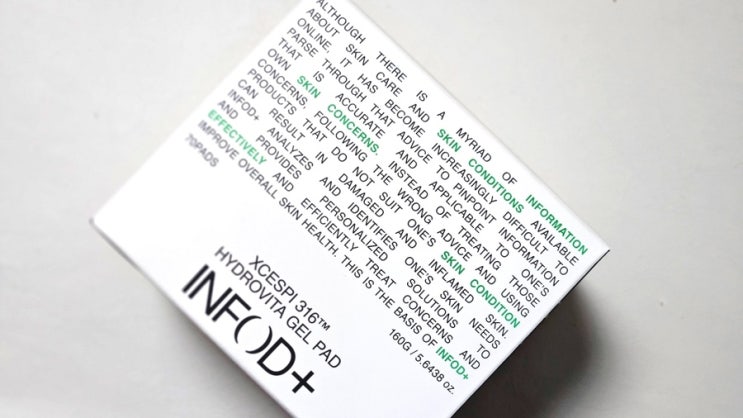 ALTHOUGH THERE IS A MYRIAD OF INFORMATION
ABOUT SKIN CARE AND SKIN CONDITIONS AVAILABLE
ONLINE, IT HAS BECOME INCREASINGLY DIFFICULT TO
PARSE THROUGH THAT ADVICE TO PINPOINT INFORMATION
THAT IS ACCURATE AND APPLICABLE TO ONE'S
OWN SKIN CONCERNS. INSTEAD OF TREATING THOSE
CONCERNS, FOLLOWING THE WRONG ADVICE AND USING
PRODUCTS THAT DO NOT SUIT ONE'S SKIN CONDITION
CAN RESULT IN DAMAGED AND INFLAMED SKIN.
INFOD+ ANALYZES AND IDENTIFIES ONE'S SKIN NEEDS
AND PROVIDES PERSONALIZED SOLUTIONS TO
EFFECTIVELY AND EFFICIENTLY TREAT CONCERNS AND
IMPROVE OVERALL SKIN HEALTH. THIS IS THE BASIS OF INFOD+
70PADS 160G / 5.6438 oz.
XCESPI 316™
HYDROVITA GEL PAD
INFOD+